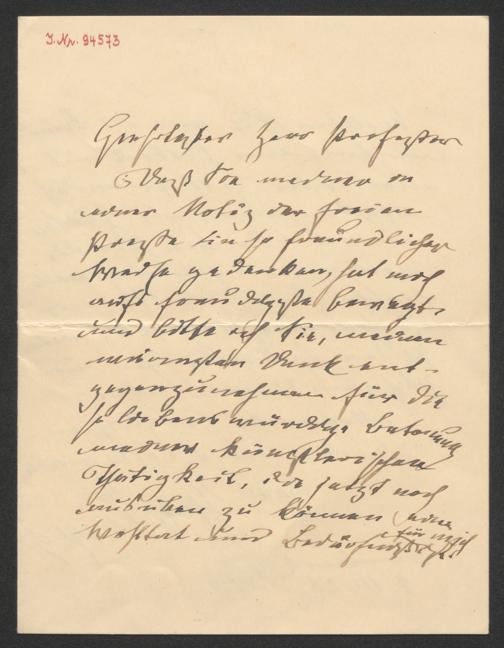 J. Nr. 94573
Geehrtester Herr Professor
Daß Sie meiner in
einer Notiz der freien
Presse in so freundlicher
Weise gedenken, hat mich
aufs freudigste bewegt
und bitte ich Sie, meinen
innigsten Dank ent-
gegenzunehmen für die
so liebenswürdige Betonung
meiner künstlerischen
Thätigkeit, die jetzt noch
ausüben zu können eine
Wohltat und Bedürfniß für mich ist.